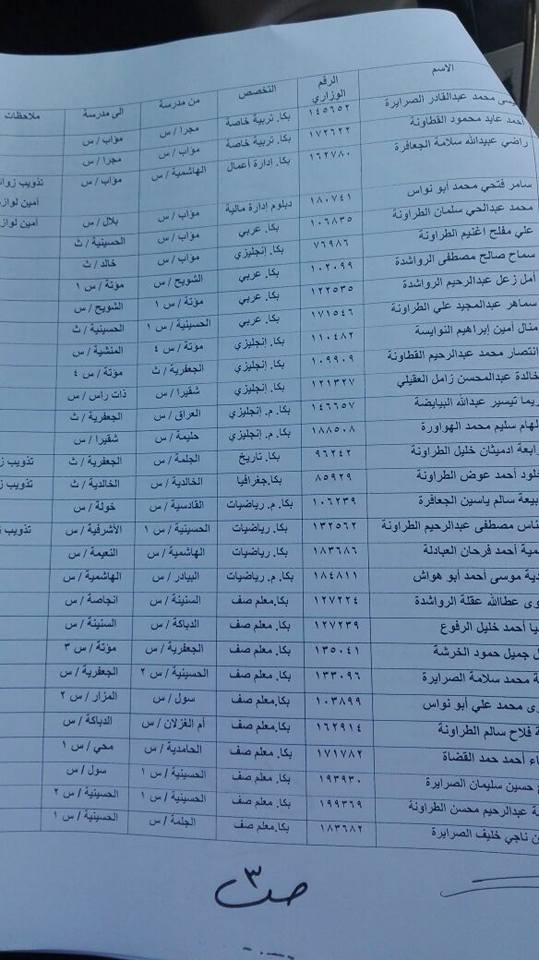 الاسم الرقم الوزاري التخصص من مدرسة الى مدرسة ملاحظات
يسى محمد عبدالقادر الصرايرة ١٤٥٦٥٢ بكا. تربية خاصة مجرا / س مؤاب / س
أحمد عايد محمود القطاونة ١٧٢٦٢٢ بكا. تربية خاصة مؤاب / س مجرا / س
راضي عبيدالله سلامة الجعافرة ١٦٢٧٨٠ بكا. إدارة أعمال الهاشمية / س مؤاب / س تذويب زوائد أمين لوازم
سامر فتحي محمد ابو نواس ١٨٠٧٤١ دبلوم إدارة مالية مؤاب / س بلال / س أمين لوازم
محمد عبدالحي سلمان الطراونة ١٠٦٨٣٥ بكا. عربي مؤاب / س الحسينية / ث
علي مفلح اغنيم الطراونة ٧٦٩٨٦ بكا. إنجليزي مؤاب / س خالد / ث
سماح صالح مصطفى الرواشدة ١٠٢٠٩٩ بكا. عربي الشويح / س مؤتة / س ١
أمل زعل عبدالرحيم الرواشدة ١٢٢٥٣٥ بكا. عربي مؤتة / س ١ الشويح / س
سماهر عبدالمجيد علي الطراونة ١٧١٥٤٦ بكا. عربي الحسينية / س ١ الحسينية / ث
منال أمين إبراهيم النوايسة ١١٠٤٨٢ بكا. إنجليزي مؤتة / س ٤ المنشية / س
انتصار محمد عبدالرحيم القطاونة ١٠٩٩٠٩ بكا. إنجليزي الجعفرية / ث مؤتة / س ٤
خالدة عبدالمحسن زامل العقيلي ١٢١٣٢٧ بكا. إنجليزي شقيرا / س ذات راس / س
ريما تيسير عبدالله البيايضة ١٤٦٦٥٧ بكا. م. إنجليزي العراق / س الجعفرية / ث
إلهام سليم محمد الهواورة ١٨٨٥٠٨ بكا. م. إنجليزي حليمة / س شقيرا / س
رابعة ادميثان خليل الطراونة ٩٦٢٤٢ بكا. تاريخ الجلمة / س الجعفرية / ث تذويب ز
خلود أحمد عوض الطراونة ٨٥٩٢٩ بكا.جغرافيا الخالدية / س الخالدية / ث تذويب ز
بيعة سالم ياسين الجعافرة ١٠٦٢٣٩ بكا. م. رياضيات القادسية / س خولة / س
ناس مصطفى عبدالرحيم الطراونة ١٣٢٥٦٢ بكا. رياضيات الحسينية / س ١ الأشرفية / س تذويب
مية أحمد فرحان العبادلة ١٨٣٦٨٦ بكا. رياضيات الهاشمية / س النعيمة / س
دية موسى أحمد أبو هواش ١٨٤٨١١ بكا. م. رياضيات البيادر / س الهاشمية / س
وى عطاالله عقلة الرواشدة ١٢٧٢٢٤ بكا.معلم صف السنينة / س انجاصة / س
يا أحمد خليل الرفوع ١٢٧٢٣٩ بكا.معلم صف الدباكة / س السنينة / س
ل جميل حمود الخرشة ١٣٥٠٤١ بكا.معلم صف الجعفرية / س مؤتة / س ٣
ة محمد سلامة الصرايرة ١٣٣٠٩٦ بكا.معلم صف الحسينية / س ٢ الجعفرية / س
رى محمد علي أبو نواس ١٠٣٨٩٩ بكا.معلم صف سول / س المزار / س ٢
ة فلاح سالم الطراونة ١٦٢٩١٤ بكا.معلم صف أم الغزلان / س الدباكة / س
اء أحمد حمد القضاة ١٧١٧٨٢ بكا.معلم صف الحامدية / س محي / س ١
ح حسين سليمان الصرايرة ١٩٣٩٣٠ بكا.معلم صف الحسينية / س ١ سول / س
ة عبدالرحيم محسن الطراونة ١٩٩٣٦٩ بكا.معلم صف الحسينية / س ١ الحسينية / س ٢
ن ناجي خليف الصرايرة ١٨٣٦٨٢ بكا.معلم صف الجلمة / س الحسينية / س ١
ص ٣